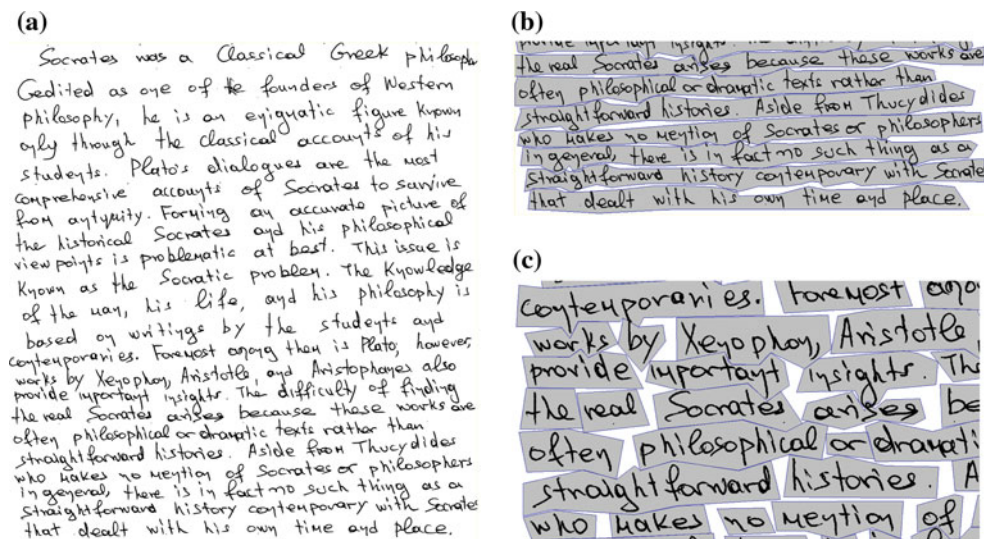 (a)
Socrates was a Classical Greek philosoph
Gedited as one of the founders of Western
philosophy, he is an enigmatic figure known
only through the classical accounts of his
students. Plato's dialogues are the most
comprehensive accounts of Socrates to survive
from antyuity. Forming an accurate picture of
the historical Socrates and his philosophical
viewpoints is problematic at best. This issue is
known as the Socratic problem. The Knowledge
of the man, his life, and his philosophy is
based on writings by the students and
contemporaries. Foremost among them is Plato; however,
works by Xenophon, Aristotle, and Aristophanes also
provide important insights. The difficulty of finding
the real Socrates arises because these works are
often philosophical or dramatic texts rather than
straightforward histories. Aside from Thucydides
who makes no mention of Socrates or philosophers
in general, there is in fact no such thing as a
straightforward history contemporary with Socrates
that dealt with his own time and place.
(b)
provide important insights.
the real Socrates arises because these works are
often philosophical or dramatic texts rather than
straightforward histories. Aside from Thucydides
who makes no mention of Socrates or philosophers
in general, there is in fact no such thing as a
straightforward history contemporary with Socrates
that dealt with his own time and place.
(c)
contemporaries. Foremost amo
works by Xenophon, Aristotle,
provide important insights. Th
the real Socrates arises be
often philosophical or dramati
straightforward histories. A
who makes no mention of